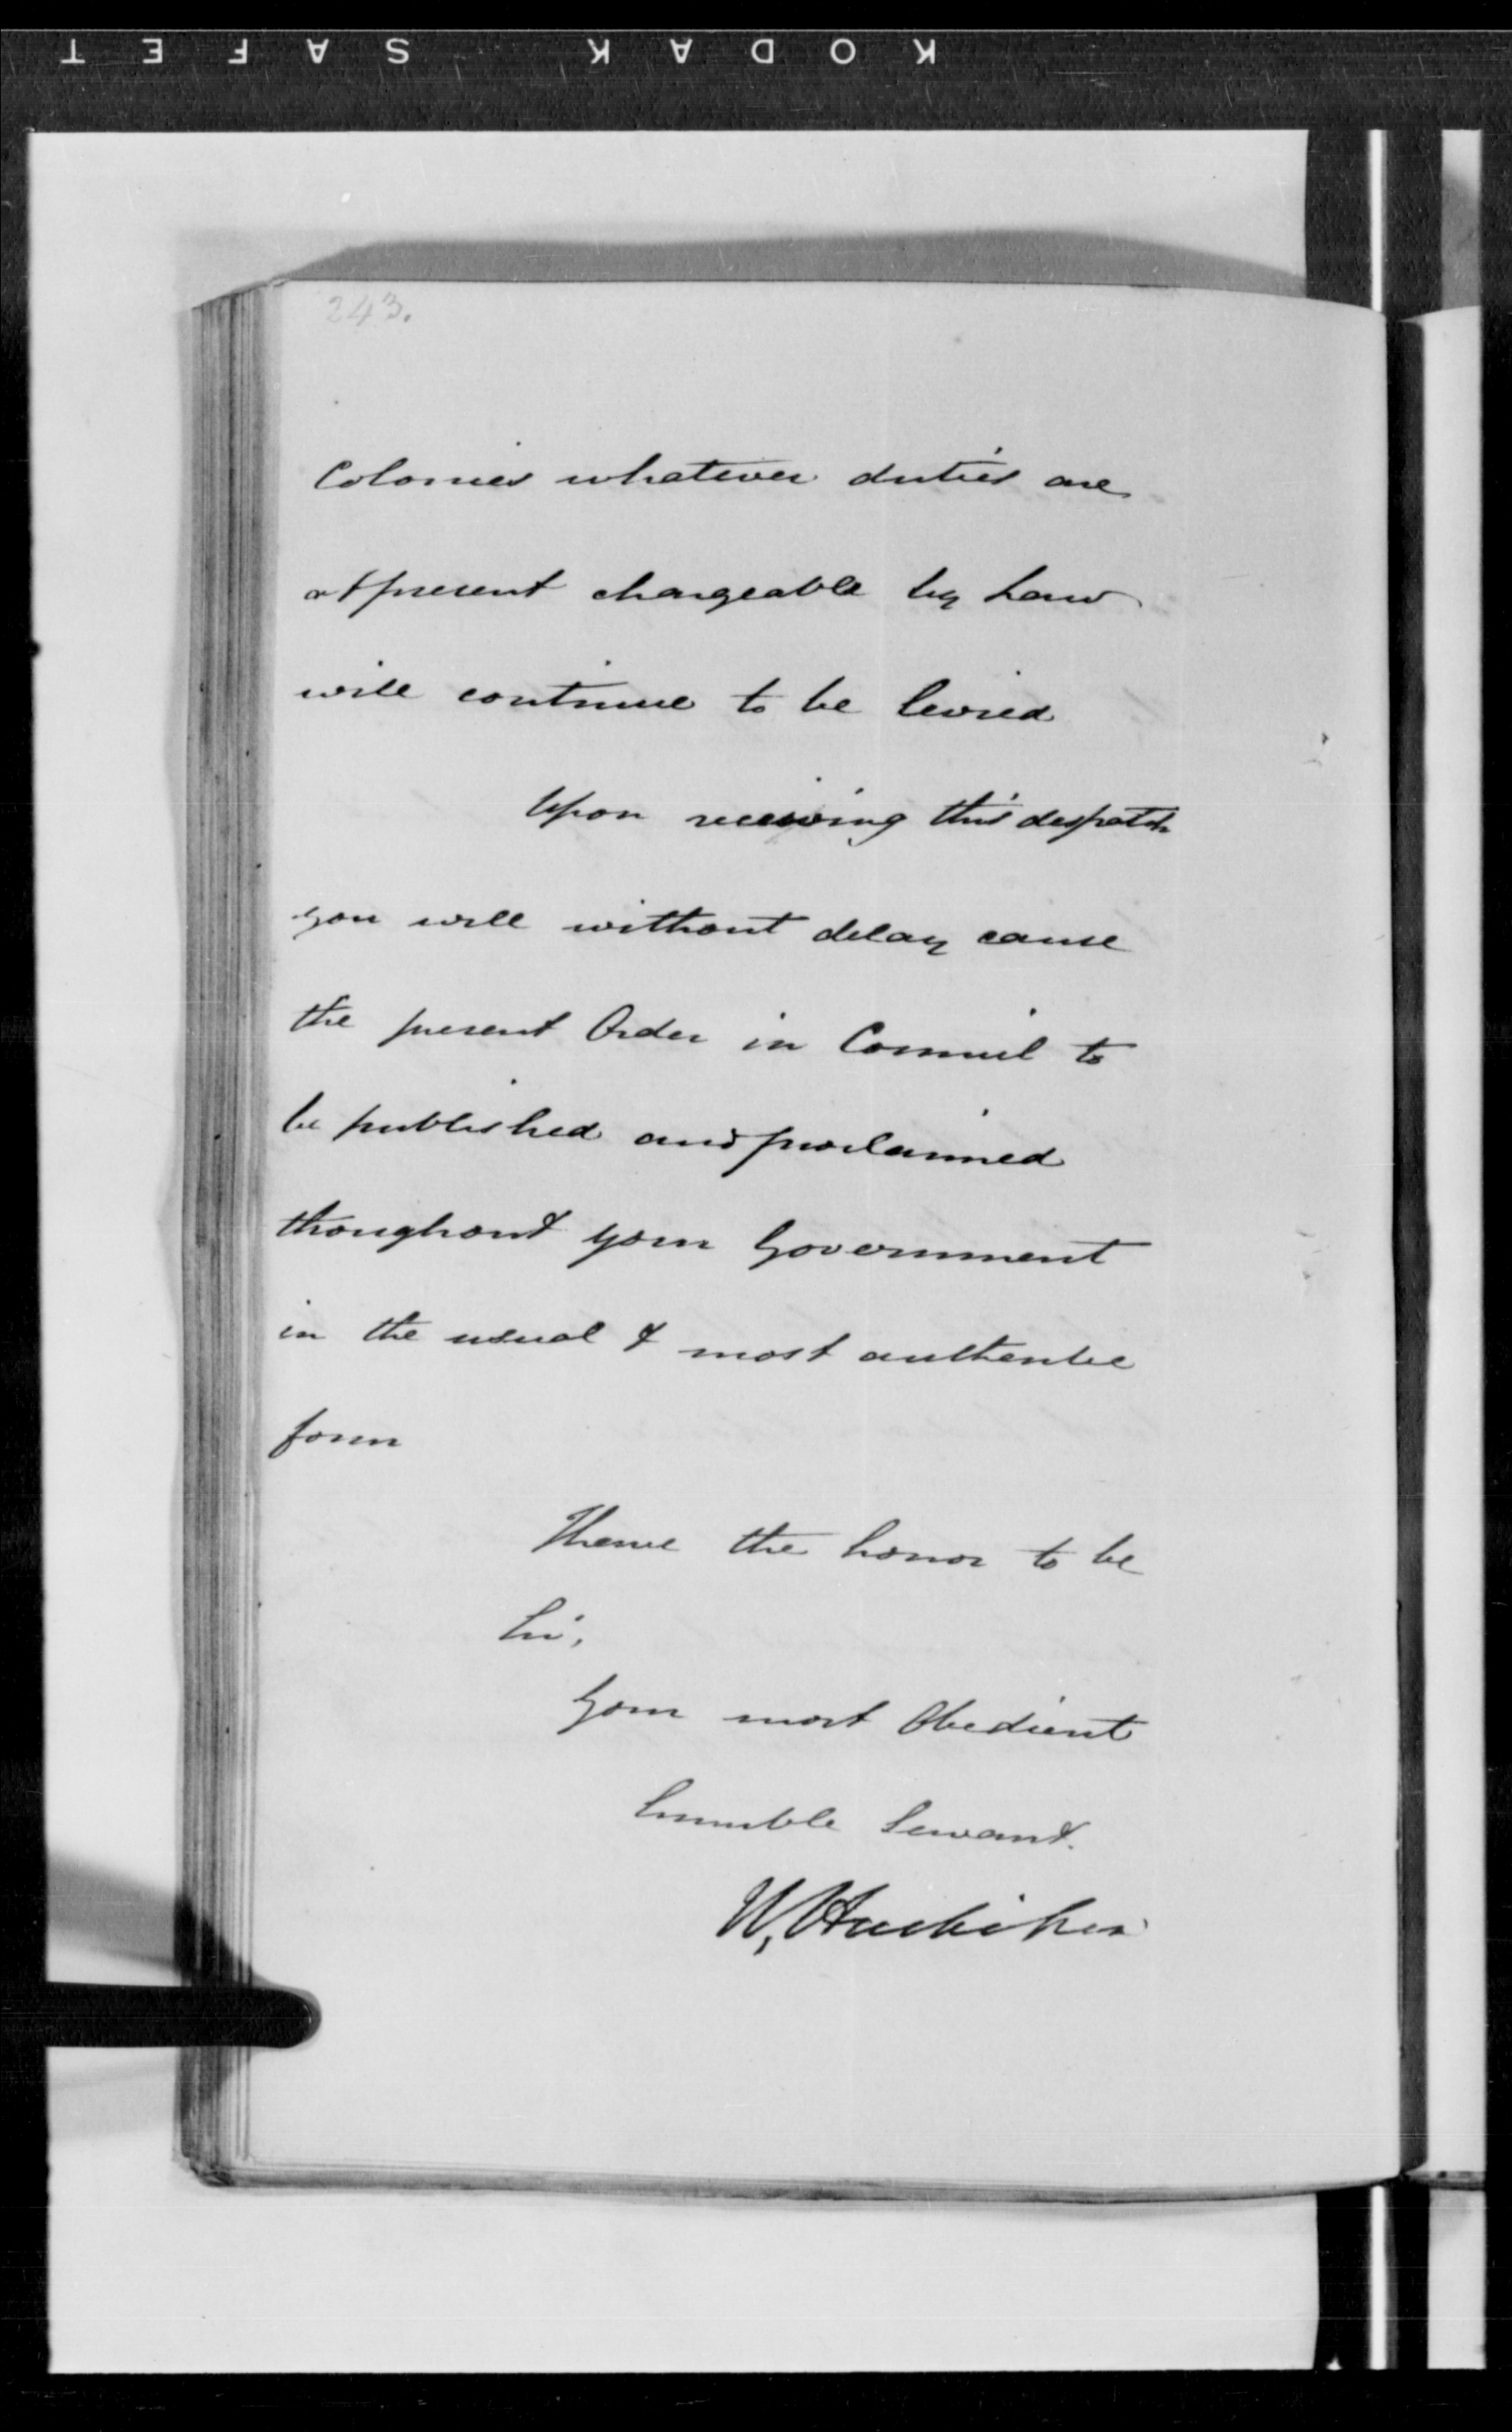 KODAK SAFET
243.
Colonies whatever duties are
at present chargeable by Law
will continue to be levied
Upon receiving this despatch
you will without delay cause
the present Order in Council to
be published and proclaimed
thoughout your Government
in the usual & most authentic
form
I have the honor to be
Sir,
Your most Obedient
humble Servant.
W. Huskisson